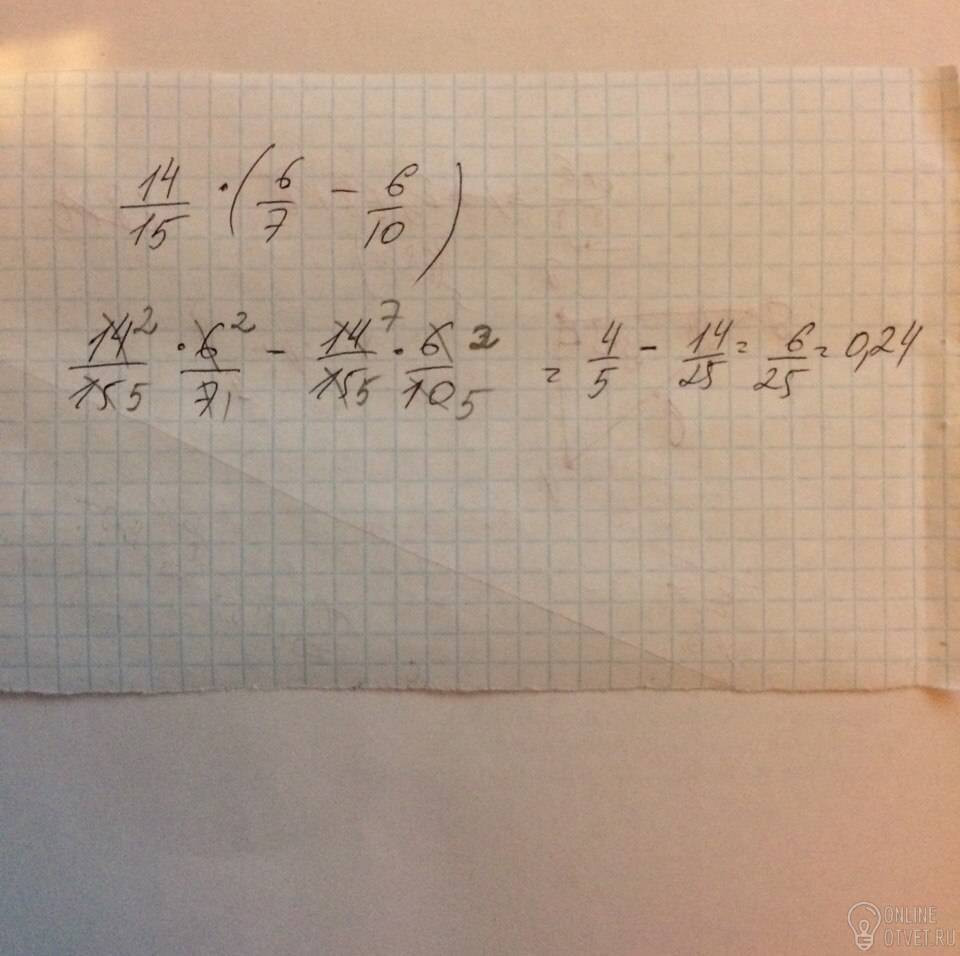 14/15 · (6/7 − 6/10)
14²/15 5 · 6²/7 1 − 14⁷/15 5 · 6 2/10 5 = 4/5 − 14/25 = 6/25 = 0,24
ONLINE
OTVET.RU